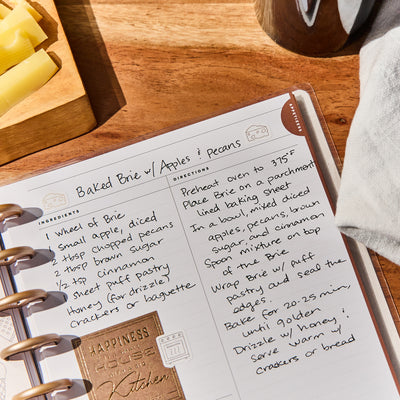 Baked Brie w/ Apples & pecans
APPETIZERS
INGREDIENTS
1 Wheel of Brie
1 Small apple, diced
2 tbsp chopped pecans
2 tbsp brown sugar
1/2 tsp cinnamon
1 sheet puff pastry
Honey (for drizzle)
Crackers or baguette
HAPPINESS
HOUSE
Kitchen
DIRECTIONS
Preheat oven to 375°F
Place Brie on a parchment
lined baking sheet
In a bowl, mixed diced
apples, pecans, brown
sugar, and cinnamon
Spoon mixture on top
of the Brie
Wrap Brie w/ puff
pastry and seal the
edges.
Bake for 20-25 min,
until golden
Drizzle w/ honey &
serve warm w/
crackers or bread